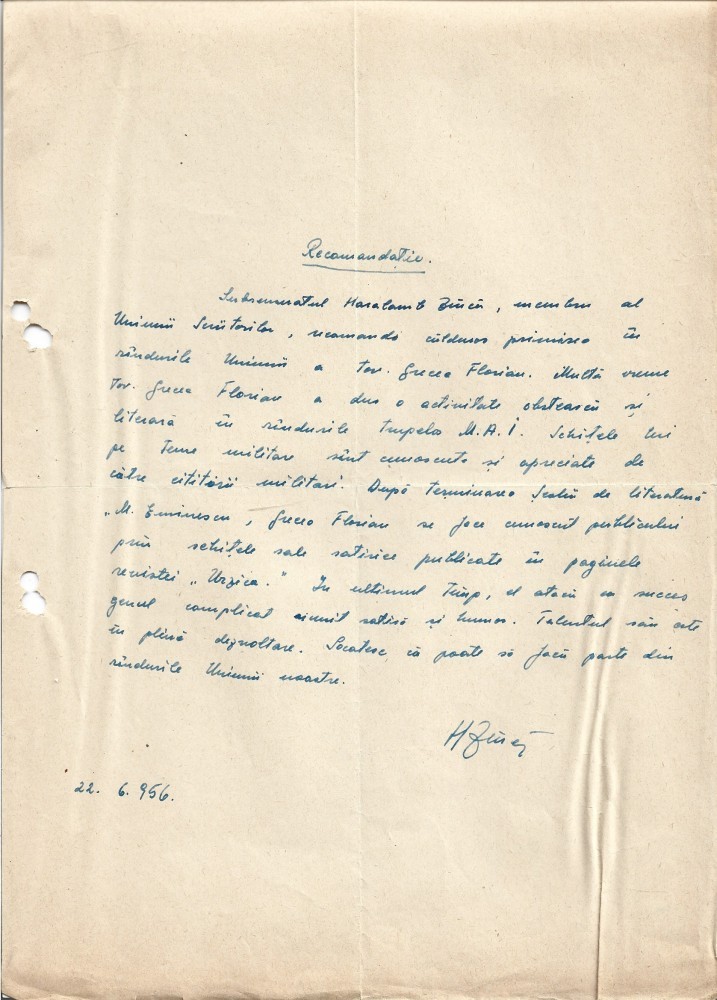 Recomandație.
Subsemnatul Haralamb Zincă, membru al
Uniunii Scriitorilor, recomand călduros primirea în
rîndurile Uniunii a tov. Grecea Florian. Multă vreme
Tov. Grecea Florian a dus o activitate obștească și
literară în rîndurile trupelor M.A.I. Schițele lui
pe teme militare sînt cunoscute și apreciate de
către cititorii militari. După terminarea Școlii de literatură
„M. Eminescu, Grecea Florian se face cunoscut publicului
prin schițele sale satirice publicate în paginele
revistei „Urzica." In ultimul timp, el atacă cu succes
genul complicat numit satiră și humor. Talentul său este
în plină dezvoltare. Socotesc că poate să facă parte din
rîndurile Uniunii noastre.
HZincă
22. 6. 956.